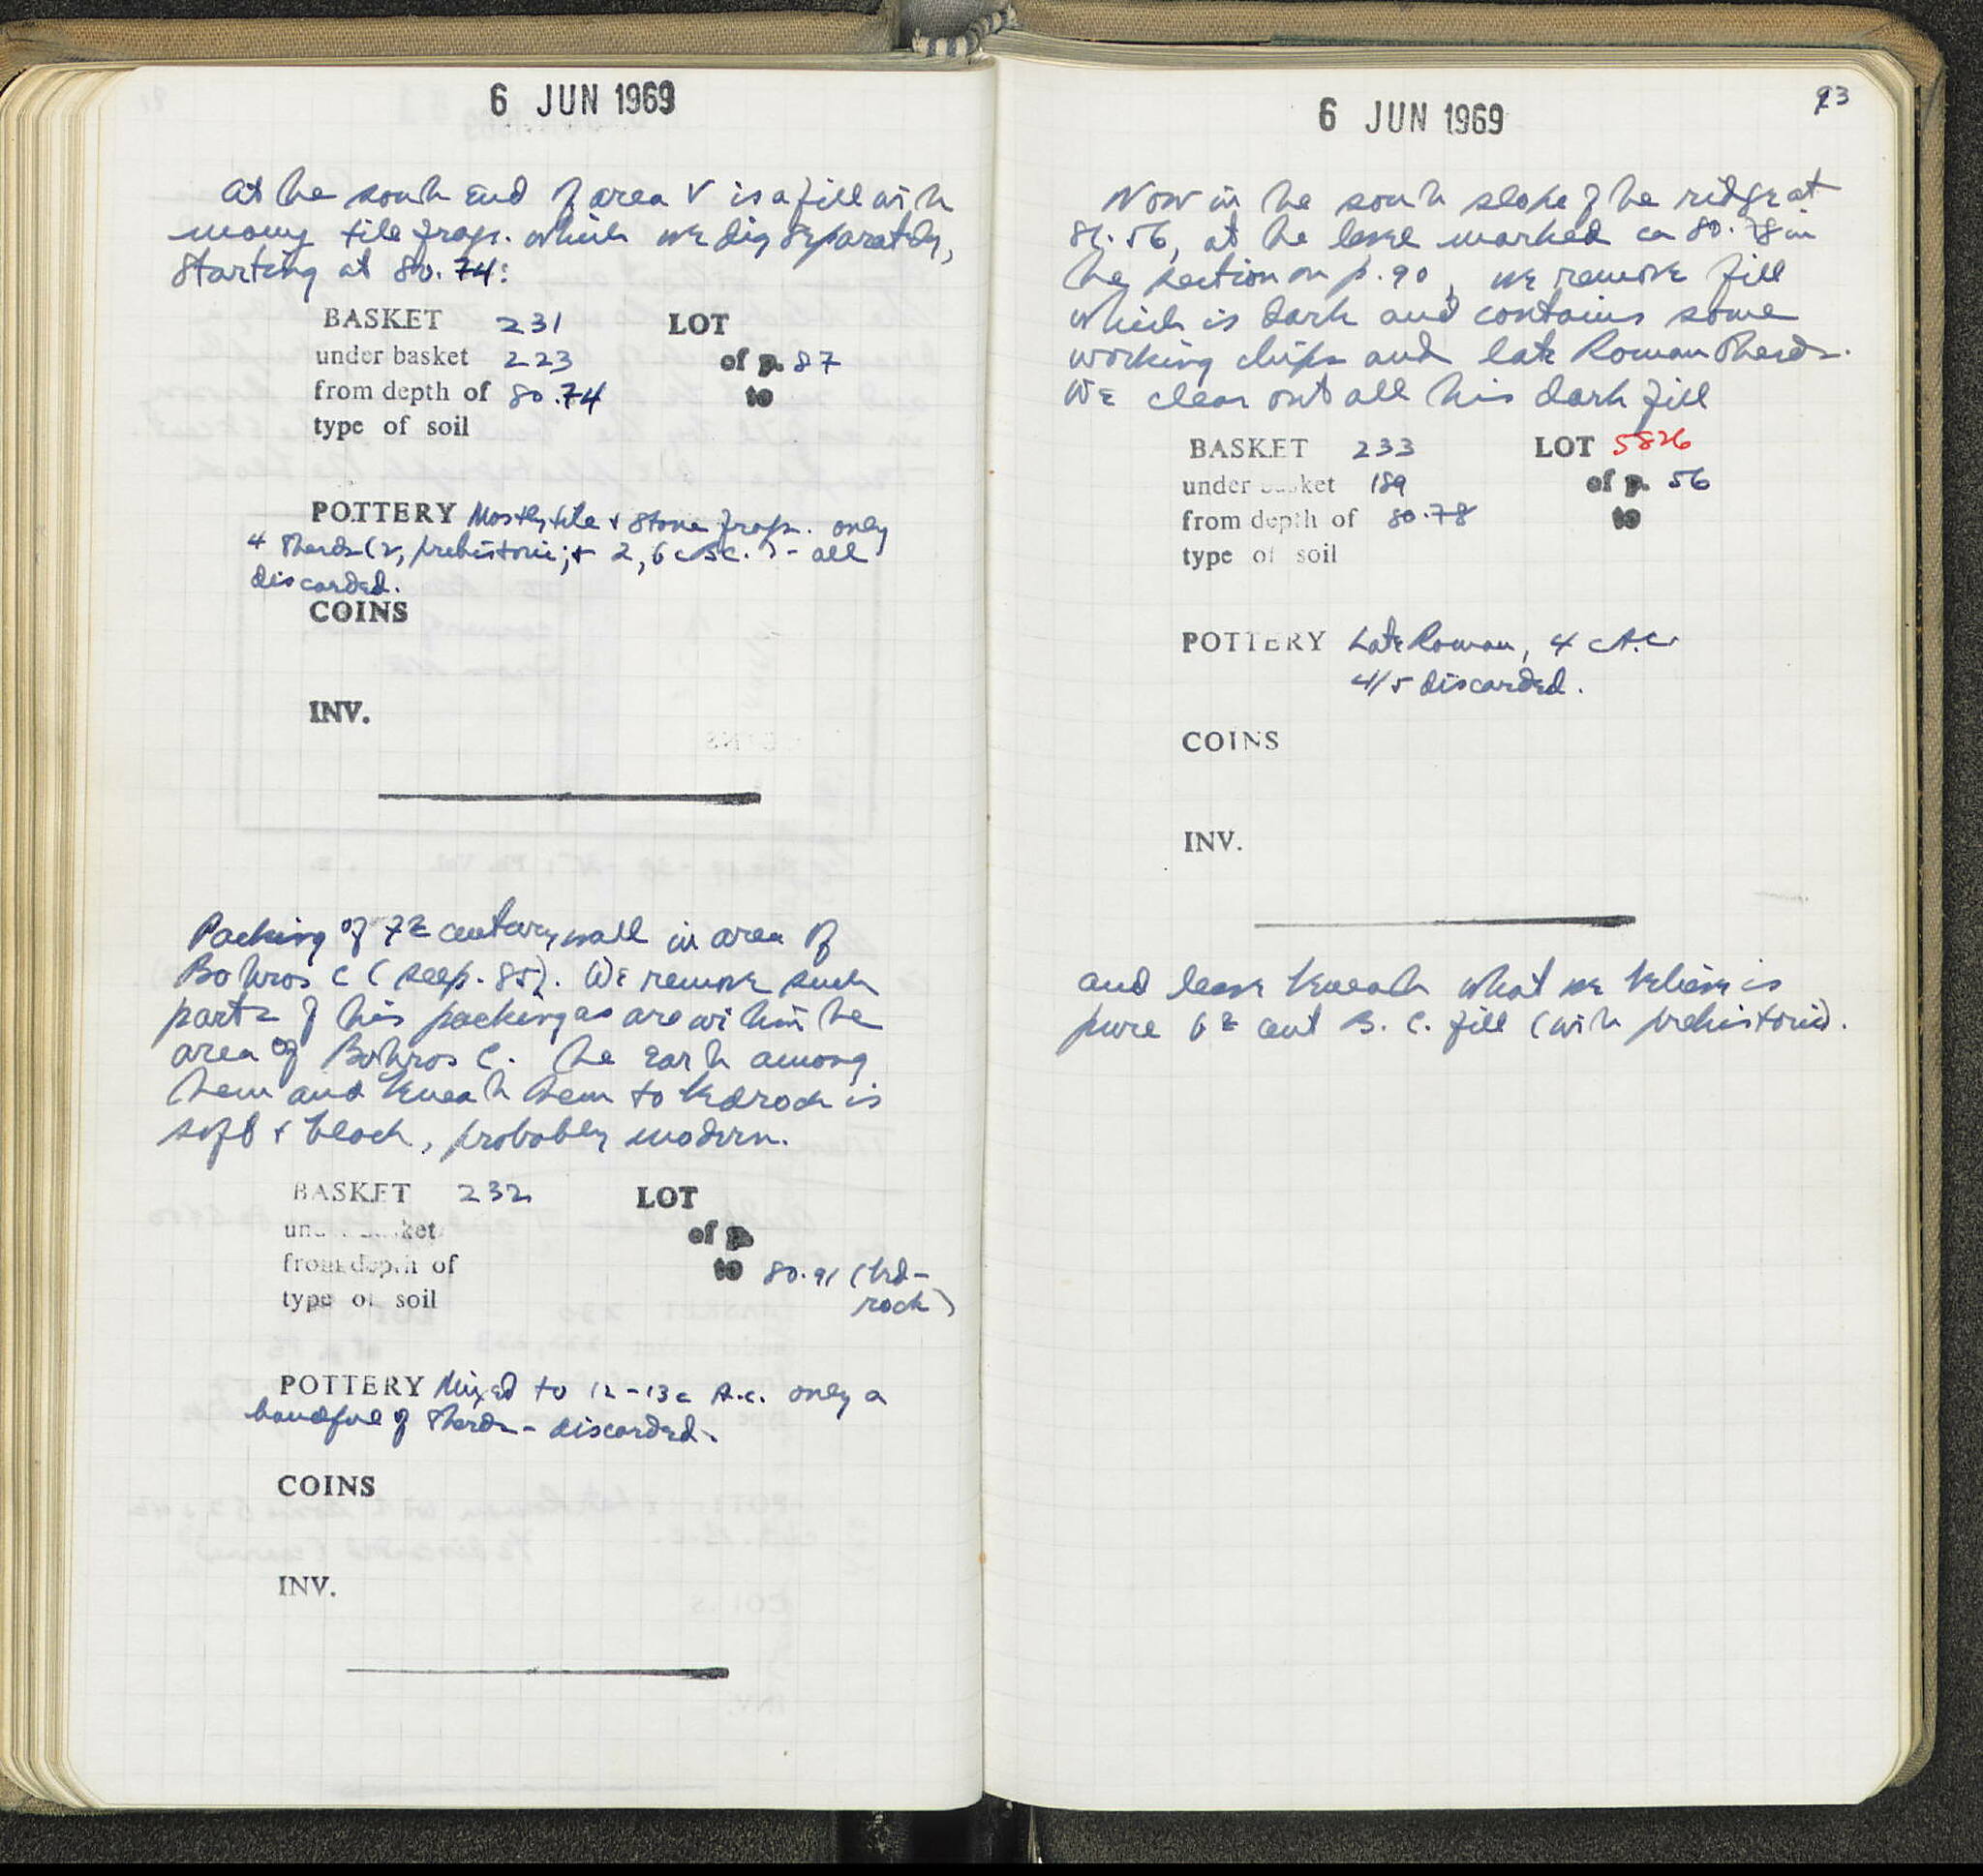 6 JUN 1969
At the south end of area V is a fill with
many tile frags. which we dig separately,
starting at 80.74:
BASKET 231 LOT
under basket 223 of p. 87
from depth of 80.74 to
type of soil
POTTERY Mostly tile + stone frags. only
4 sherds (2, prehistoric; + 2, 6 c BC.) - all
discarded.
COINS
INV.
Packing of 7th century wall in area of
Bothros C (see p. 85). We remove such
parts of this packing as are within the
area of Bothros C. The earth among
them and beneath them to bedrock is
soft + black, probably modern.
BASKET 232 LOT
under basket of p.
from depth of to 80.91 (bed-
type of soil rock)
POTTERY Mixed to 12-13 c A.C. only a
handful of sherds - discarded.
COINS
INV.
93
6 JUN 1969
Now in the south slope of the ridge at
81.56, at the level marked ca 80.78 in
the section on p. 90, we remove fill
which is dark and contains some
working chips and late Roman sherds.
We clear out all this dark fill
BASKET 233 LOT 5826
under basket 189 of p. 56
from depth of 80.78 to
type of soil
POTTERY Late Roman, 4 c A.C.
4/5 discarded.
COINS
INV.
and leave beneath what we believe is
pure 6th cent B.C. fill (with prehistoric).